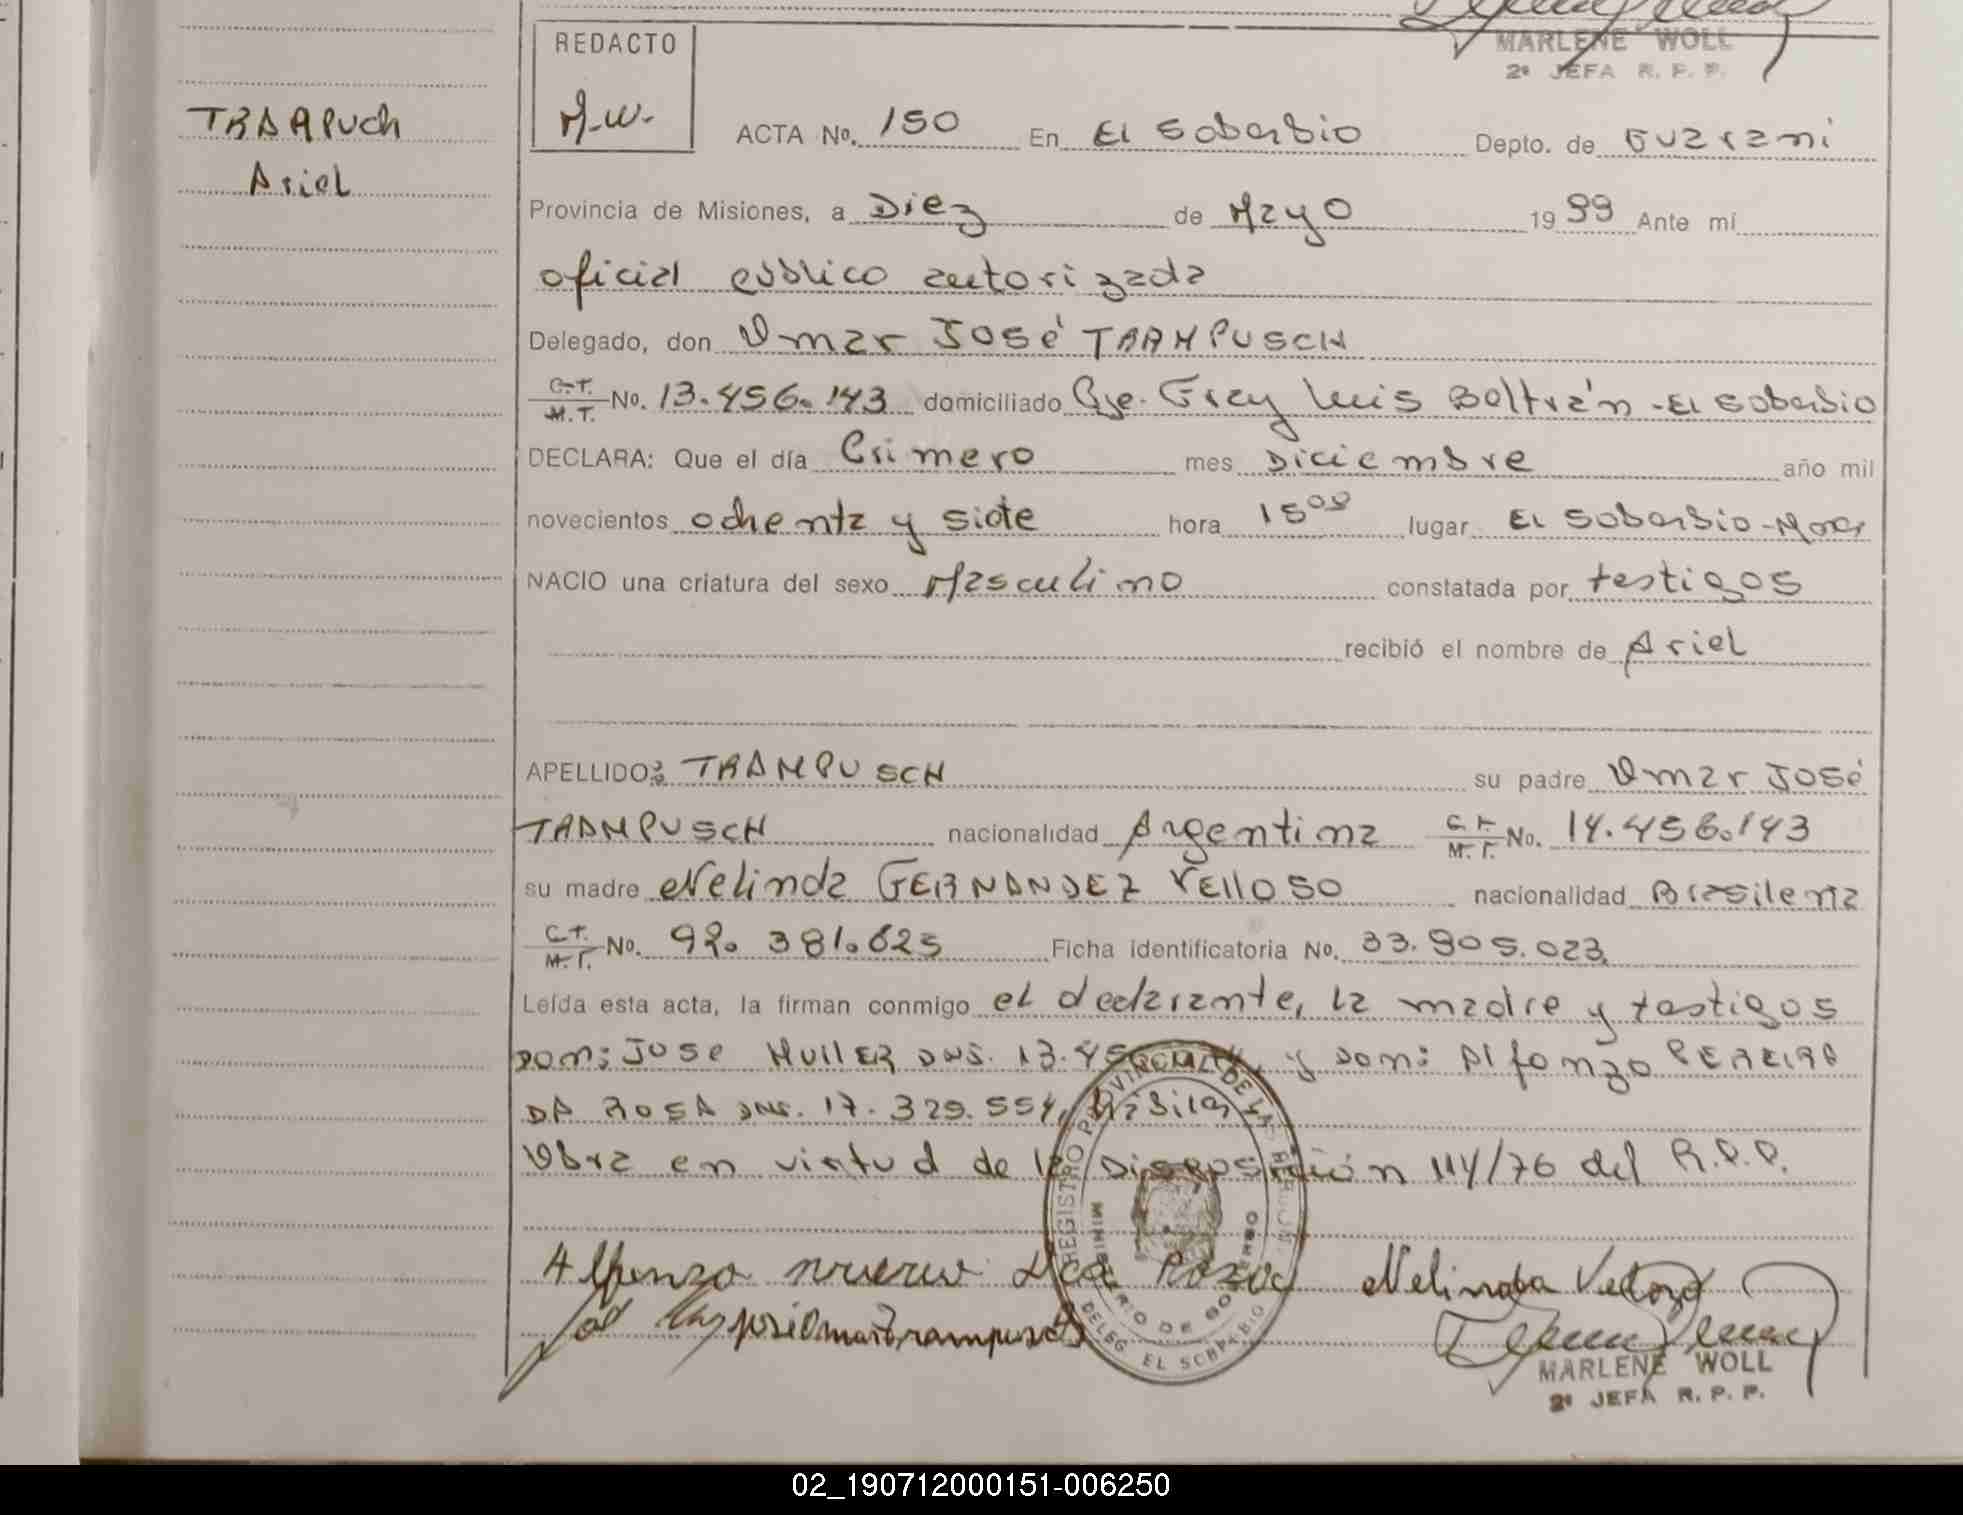 MARLENE WOLL
2ª JEFA R. P. P.
REDACTO
M.W.
TRAAPUch
Ariel
ACTA No. 150 En El Soberbio Depto. de Guarani
Provincia de Misiones, a Diez de Mayo 1999 Ante mí
oficial público autorizada
Delegado, don Omar José TRAMPUSCH
C.T. M.T. No. 13.456.143 domiciliado Cje. Fray Luis Beltrán - El Soberbio
DECLARA: Que el día Primero mes Diciembre año mil
novecientos ochenta y siete hora 15⁰⁰ lugar El Soberbio-Mnes
NACIO una criatura del sexo Masculino constatada por testigos
recibió el nombre de Ariel
APELLIDO: TRAMPUSCH su padre Omar José
TRAMPUSCH nacionalidad Argentina C.I. M.I. No. 14.456.143
su madre Nelinda FERNANDEZ VELLOSO nacionalidad Brasileña
C.I. M.I. No. 92.381.625 Ficha identificatoria No. 33.905.023
Leída esta acta, la firman conmigo el declarante, la madre y testigos
Don: Jose MULLER DNI. 13.45 y Don: Alfonzo PEREIRA
DA ROSA DNI. 17.329.554,
Obra en virtud de la Disposición 114/76 del R.P.P.
REGISTRO PROVINCIAL DE LAS PERSONAS
MINISTERIO DE GOBIERNO
DELEG EL SOBERBIO
Alfonzo Da Roza Nelinda Velozo
jose Omar Trampusch
MARLENE WOLL
2ª JEFA R. P. P.
02_190712000151-006250